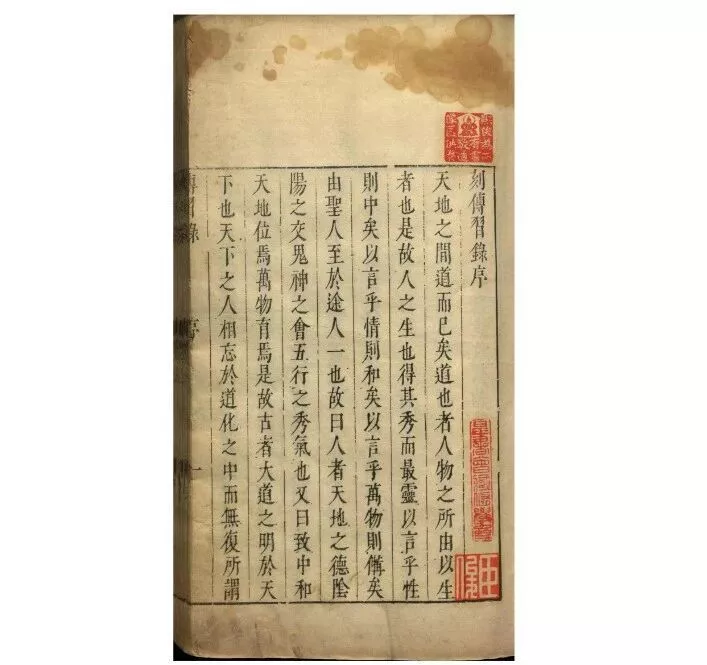 刻傳習錄序
天地之間道而已矣道也者人物之所由以生
者也是故人之生也得其秀而最靈以言乎性
則中矣以言乎情則和矣以言乎萬物則備矣
由聖人至於途人一也故曰人者天地之德陰
陽之交鬼神之會五行之秀氣也又曰致中和
天地位焉萬物育焉是故古者大道之明於天
下也天下之人相忘於道化之中而無復所謂
傳習錄 序 一